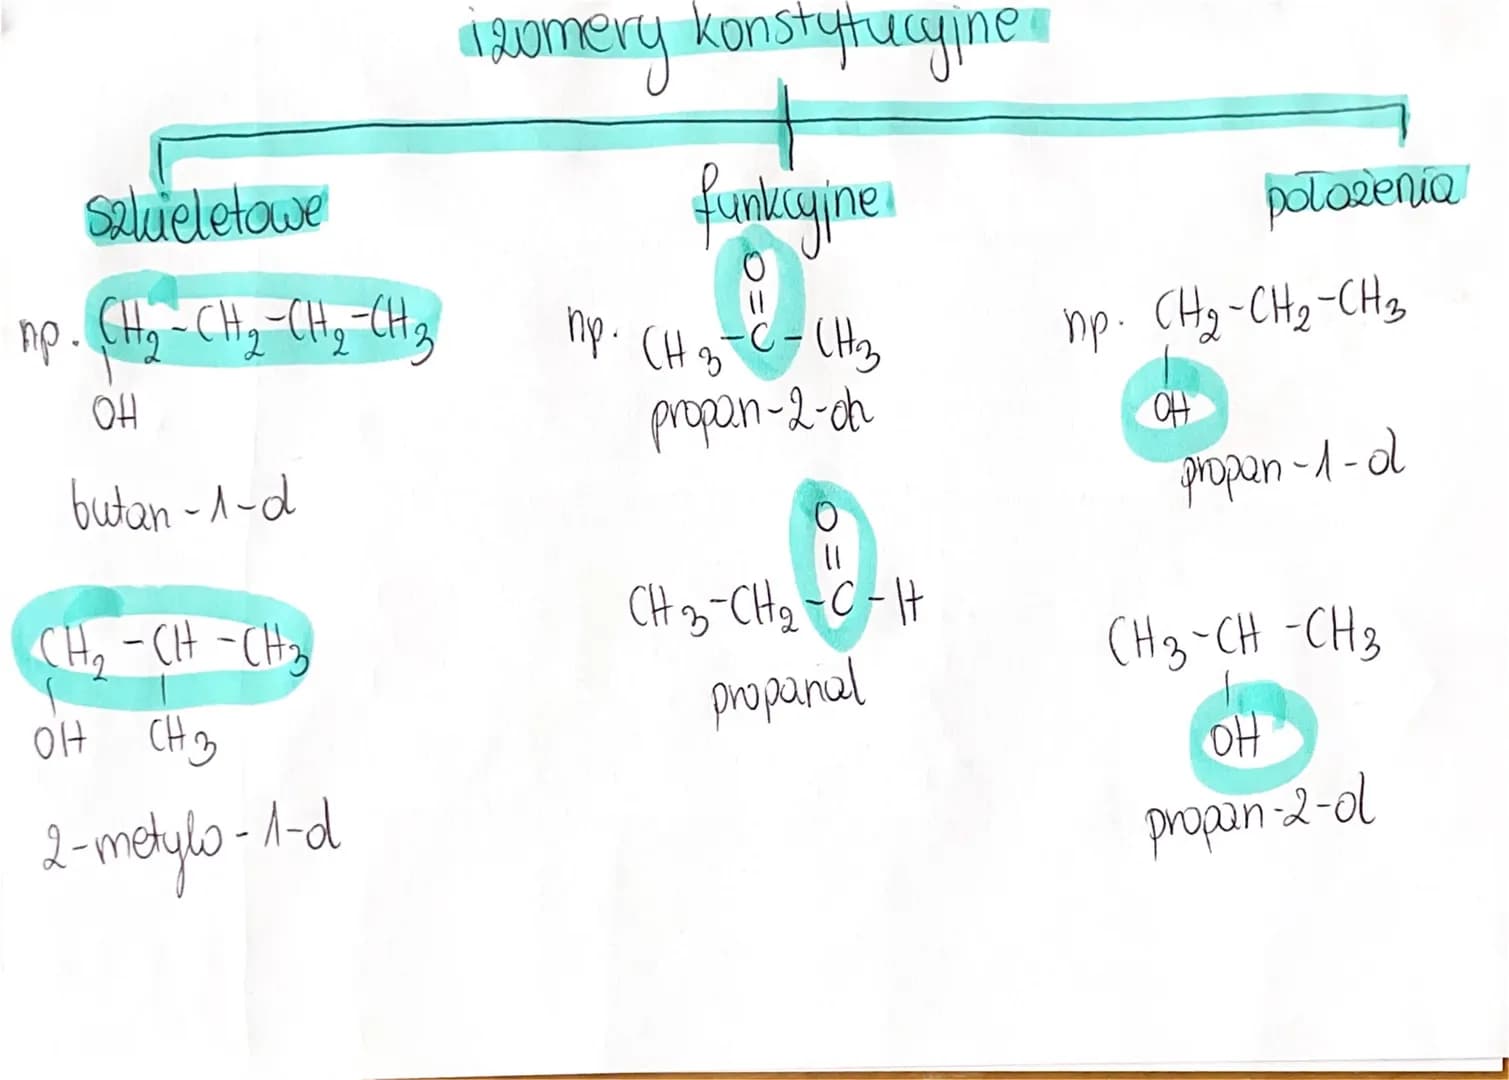 izomery konstytucyjne
szkieletowe
np. CH2-CH2-CH2-CH3
OH
butan-1-ol
CH2-CH-CH3
OH CH3
2-metylo-1-ol
funkcyjne
O
=
np. CH3-C-CH3
propan-2-on
O
=
CH3-CH2-C-H
propanal
położenia
np. CH2-CH2-CH3
OH
propan-1-ol
CH3-CH-CH3
OH
propan-2-ol